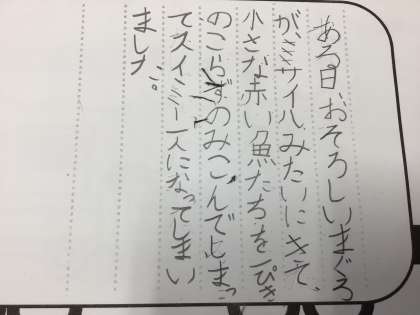 ある日、おそろしいまぐろ
がミサイルみたいにきて、
小さな赤い魚たちを一ぴき
のこらずのみこんでしまっ
てスイミー一人になってしまい
ました。